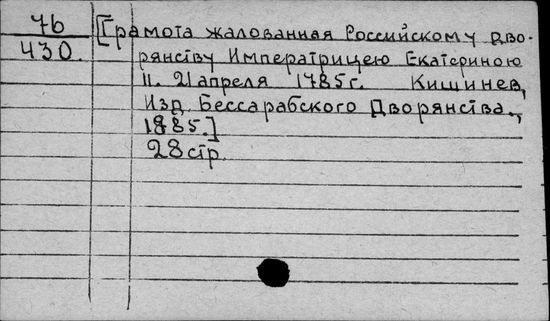 76
430.
[Грамота жалованная Российскому дво-
рянству Императрицею Екатериною
II. 21 апреля 1785г. Кишинев,
Изд. Бессарабского Дворянства.,
1885.]
28стр.